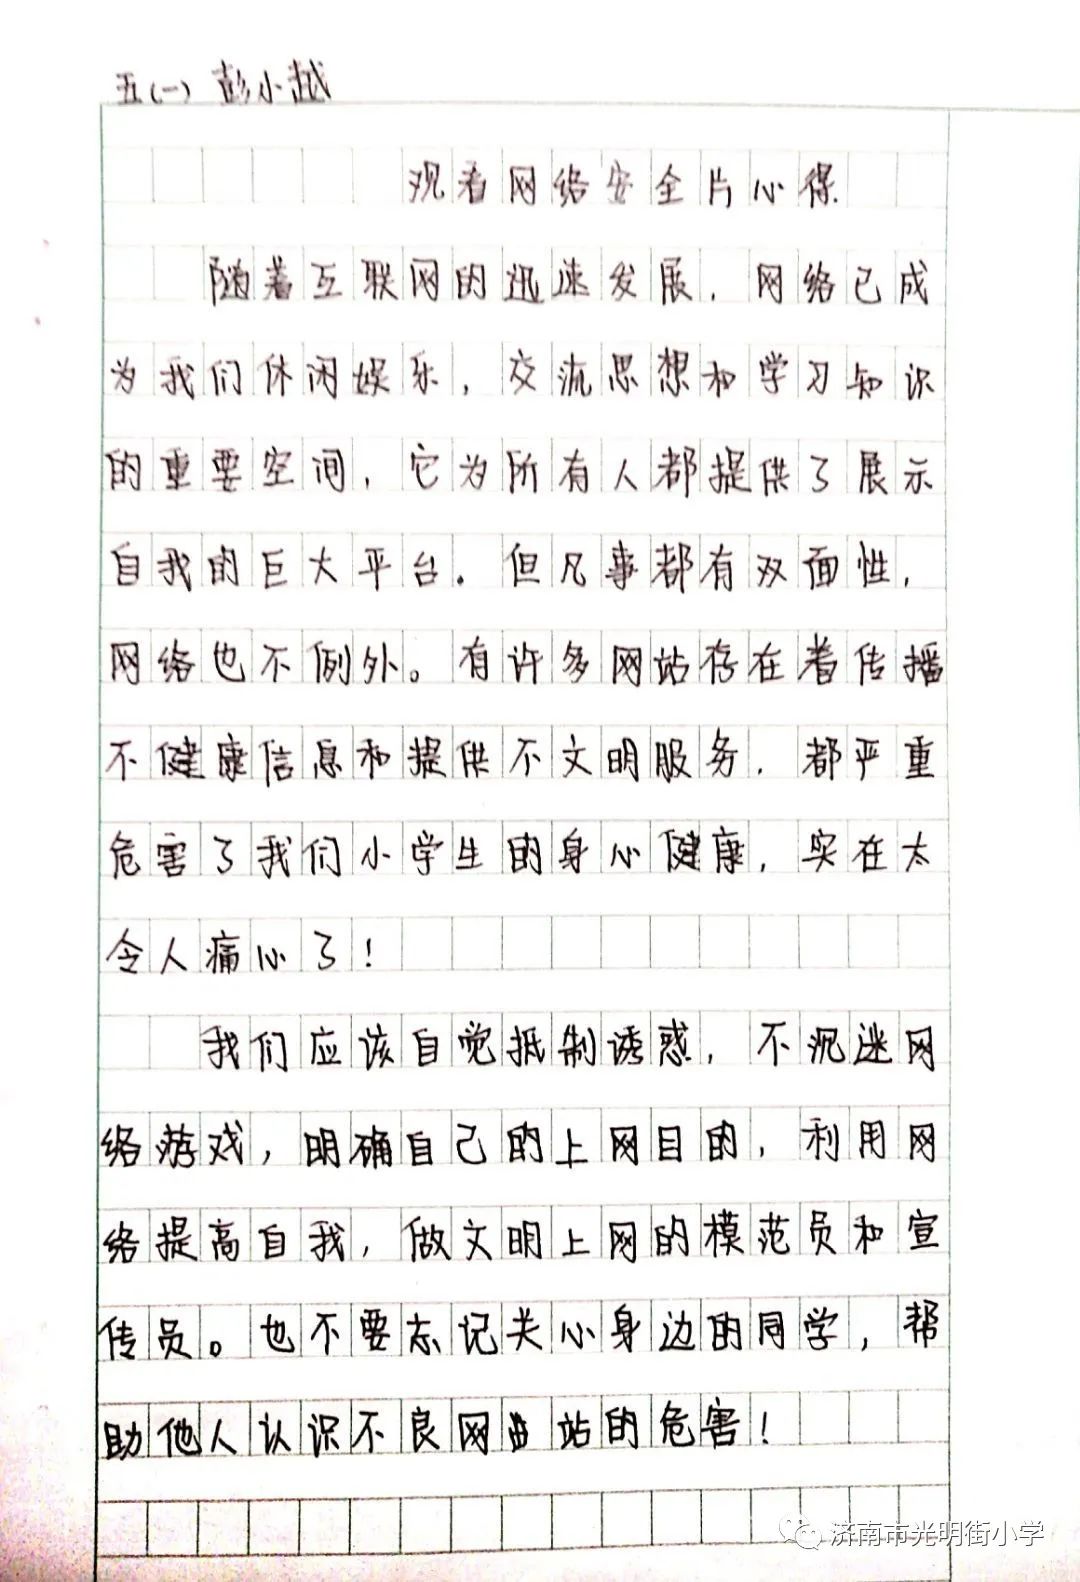 五(一) 彭小越
观看网络安全片心得
随着互联网的迅速发展，网络已成
为我们休闲娱乐，交流思想和学习知识
的重要空间，它为所有人都提供了展示
自我的巨大平台．但凡事都有双面性，
网络也不例外。有许多网站存在着传播
不健康信息和提供不文明服务．都严重
危害了我们小学生的身心健康，实在太
令人痛心了！
我们应该自觉抵制诱惑，不沉迷网
络游戏，明确自己的上网目的，利用网
络提高自我，做文明上网的模范员和宣
传员。也不要忘记关心身边的同学，帮
助他人认识不良网站的危害！
济南市光明街小学